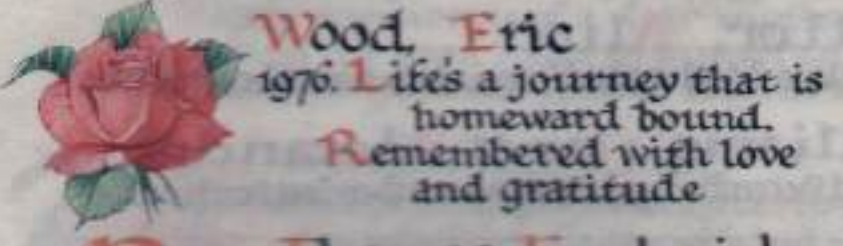 Wood, Eric
1976. Life's a journey that is
homeward bound.
Remembered with love
and gratitude